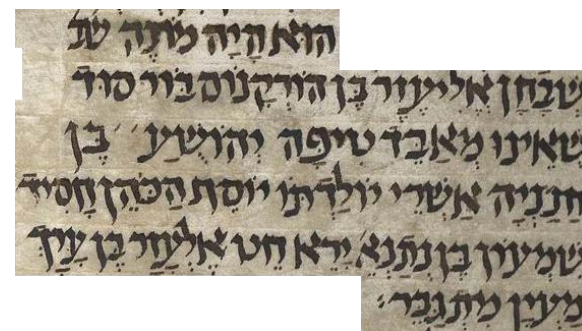 הוּא הָיָה מוֹנֶה שב
שִׁבְחָן אֱלִיעֶזֶר בֶּן הוֹרְקְנוֹס בּוֹר סוּד
שֶׁאֵינוּ מְאַבֵּד טִיפָּה יְהוֹשֻׁעַ בֶּן
חֲנַנְיָה אַשְׁרֵי יוֹלַדְתּוֹ יוֹסֵה הַכֹּהֵן חָסִיד
שִׁמְעוֹן בֶּן נְתַנְאֵל יְרֵא חֵט אֶלְעָזָר בֶּן עֲרָךְ
מַעְיָן מִתְגַּבֵּר